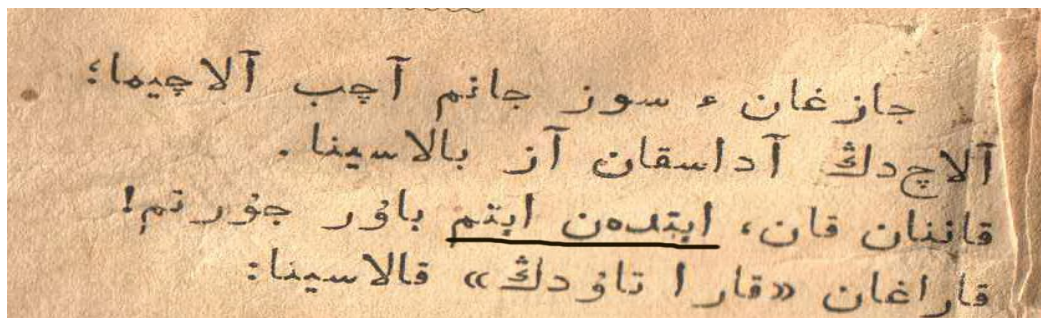 جازغان ء سوز جانم آچب آلاچیما؛
آلاچ‌دڭ آداسقان آز بالاسینا.
قاننان قان، ایتدەن ایتم باۋر جۇرتم!
قاراغان «قارا تاۋدڭ» قالاسینا: